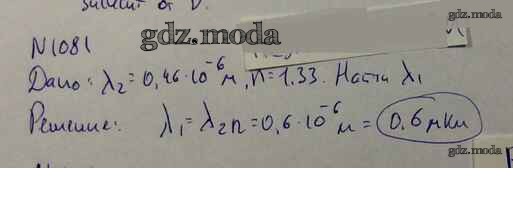 gdz.moda
N1081
gdz.moda
Дано: λ₂=0,46·10⁻⁶м, n=1.33. Найти λ₁
Решение: λ₁=λ₂n=0,6·10⁻⁶м=0,6 мкм
gdz.moda